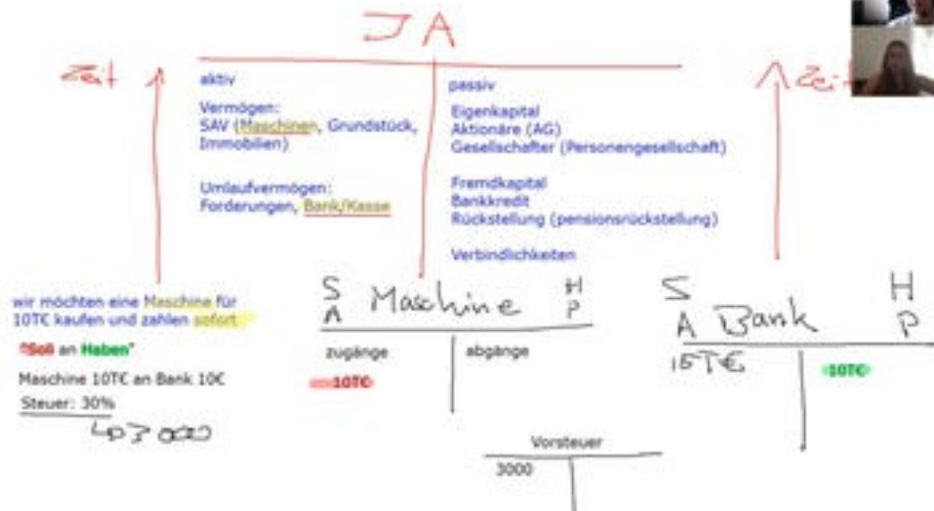 JA
Zeit
Zeit
aktiv
Vermögen:
SAV (Maschinen, Grundstück,
Immobilien)
Umlaufvermögen:
Forderungen, Bank/Kasse
passiv
Eigenkapital
Aktionäre (AG)
Gesellschafter (Personengesellschaft)
Fremdkapital
Bankkredit
Rückstellung (pensionsrückstellung)
Verbindlichkeiten
wir möchten eine Maschine für
10T€ kaufen und zahlen sofort
"Soll an Haben"
Maschine 10T€ an Bank 10€
Steuer: 30%
3000
S Maschine H
A P
zugänge abgänge
10T€
S H
A Bank P
15T€ 10T€
Vorsteuer
3000